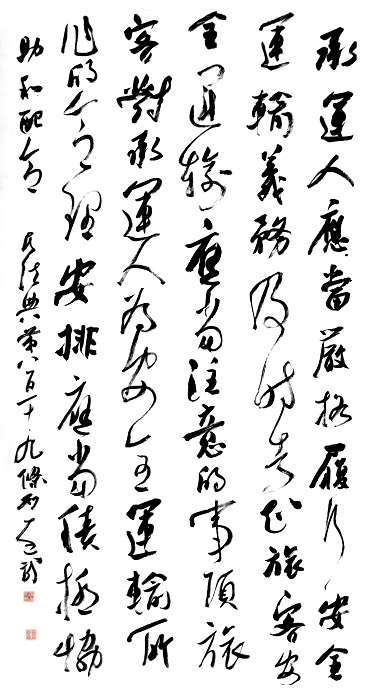 承運人應當嚴格履行安全
運輸義務及時告知旅客安
全運輸應當注意的事項旅
客對承運人為安全運輸所
作的合理安排應當積極協
助和配合 民法典第八百一十九條